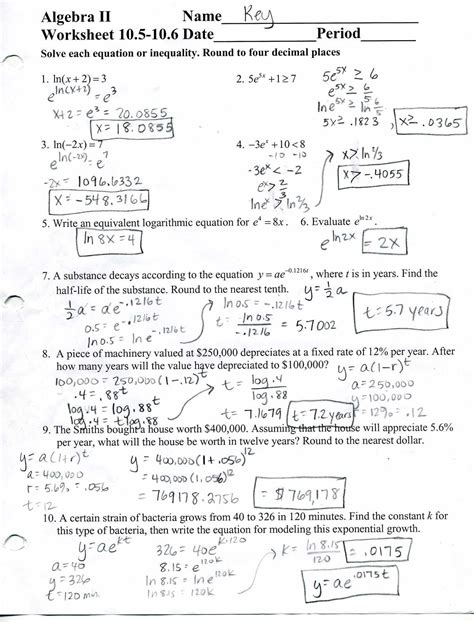 Algebra II Name Key
Worksheet 10.5-10.6 Date Period
Solve each equation or inequality. Round to four decimal places
1. ln(x + 2) = 3
e^ln(x+2) = e^3
x+2 = e^3 = 20.0855
x = 18.0855
2. 5e^5x + 1 ≥ 7
5e^5x ≥ 6
e^5x ≥ 6/5
ln e^5x ≥ ln 6/5
5x ≥ .1823
x ≥ .0365
3. ln(−2x) = 7
e^ln(-2x) = e^7
-2x = 1096.6332
x = -548.3166
4. −3e^x + 10 < 8
-10 -10
-3e^x < -2
e^x > 2/3
ln e^x > ln 2/3
x > ln 2/3
x > -.4055
5. Write an equivalent logarithmic equation for e^4 = 8x.
ln 8x = 4
6. Evaluate e^ln 2x.
e^ln2x = 2x
7. A substance decays according to the equation y = ae^−0.1216t, where t is in years. Find the
half-life of the substance. Round to the nearest tenth.
y = 1/2 a
1/2 a = ae^-.1216t
0.5 = e^-.1216t
ln 0.5 = ln e^-.1216t
ln 0.5 = -.1216t
t = ln 0.5 / -.1216 = 5.7002
t = 5.7 years
8. A piece of machinery valued at $250,000 depreciates at a fixed rate of 12% per year. After
how many years will the value have depreciated to $100,000?
y = a(1-r)^t
a = 250,000
y = 100,000
r = 12% = .12
100,000 = 250,000(1-.12)^t
.4 = .88^t
log .4 = log .88^t
log .4 = t log .88
t = log .4 / log .88
t = 7.1679
t = 7.2 years
9. The Smiths bought a house worth $400,000. Assuming that the house will appreciate 5.6%
per year, what will the house be worth in twelve years? Round to the nearest dollar.
y = a(1+r)^t
a = 400,000
r = 5.6% = .056
t = 12
y = 400,000(1+.056)^12
= 400,000(1.056)^12
= 769178.2756
= $769,178
10. A certain strain of bacteria grows from 40 to 326 in 120 minutes. Find the constant k for
this type of bacteria, then write the equation for modeling this exponential growth.
y = ae^kt
a = 40
y = 326
t = 120 min.
326 = 40e^k·120
8.15 = e^120k
ln 8.15 = ln e^120k
ln 8.15 = 120k
k = ln 8.15 / 120 = .0175
y = ae^.0175t